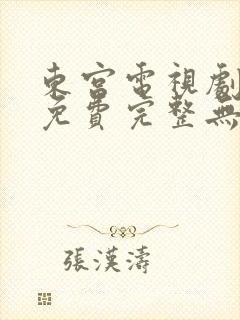 東宮電視劇
免費完整無
張漢濤